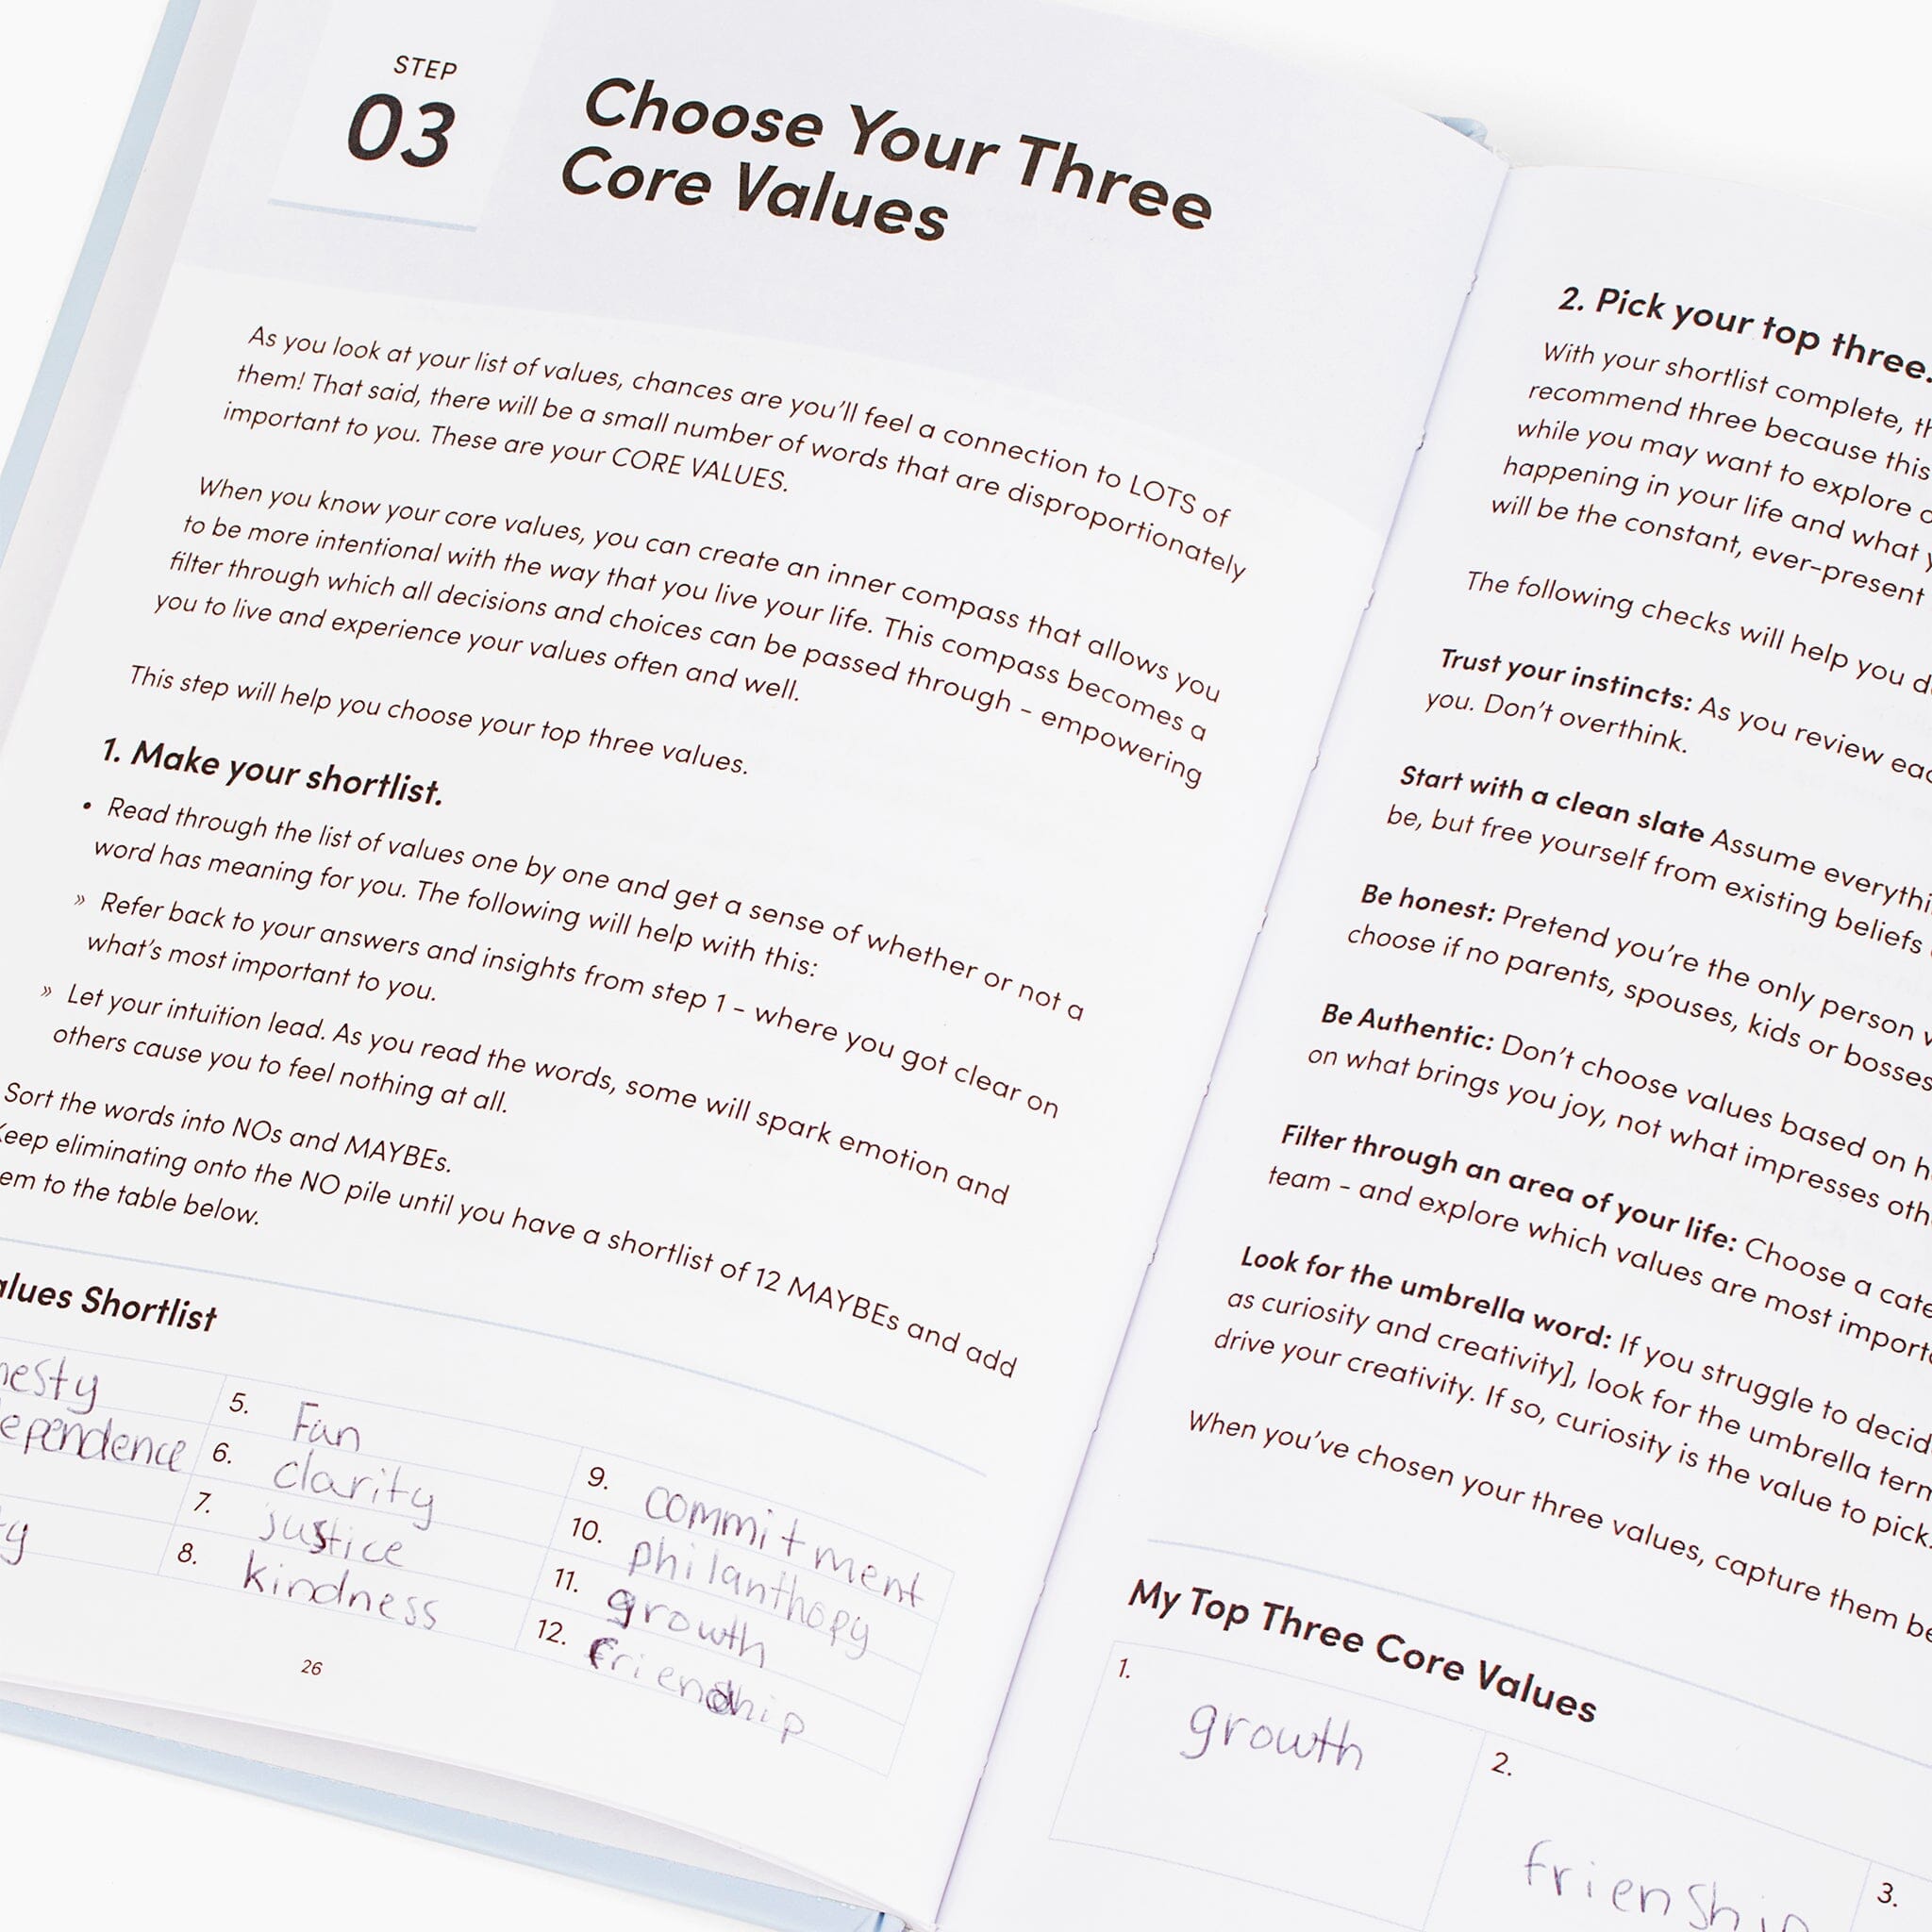 STEP
03
Choose Your Three
Core Values
As you look at your list of values, chances are you'll feel a connection to LOTS of
them! That said, there will be a small number of words that are disproportionately
important to you. These are your CORE VALUES.
When you know your core values, you can create an inner compass that allows you
to be more intentional with the way that you live your life. This compass becomes a
filter through which all decisions and choices can be passed through – empowering
you to live and experience your values often and well.
This step will help you choose your top three values.
1. Make your shortlist.
• Read through the list of values one by one and get a sense of whether or not a
word has meaning for you. The following will help with this:
» Refer back to your answers and insights from step 1 – where you got clear on
what's most important to you.
» Let your intuition lead. As you read the words, some will spark emotion and
others cause you to feel nothing at all.
Sort the words into NOs and MAYBEs.
Keep eliminating onto the NO pile until you have a shortlist of 12 MAYBEs and add
em to the table below.
alues Shortlist
nesty
ependence
ty
5. Fun
6. clarity
7. justice
8. kindness
9. commitment
10. philanthopy
11. growth
12. friendship
26
2. Pick your top three.
With your shortlist complete, th
recommend three because this
while you may want to explore o
happening in your life and what y
will be the constant, ever-present
The following checks will help you d
Trust your instincts: As you review eac
you. Don't overthink.
Start with a clean slate Assume everythi
be, but free yourself from existing beliefs
Be honest: Pretend you're the only person w
choose if no parents, spouses, kids or bosses
Be Authentic: Don't choose values based on h
on what brings you joy, not what impresses oth
Filter through an area of your life: Choose a cate
team – and explore which values are most importa
Look for the umbrella word: If you struggle to decid
as curiosity and creativity], look for the umbrella term
drive your creativity. If so, curiosity is the value to pick.
When you've chosen your three values, capture them be
My Top Three Core Values
1. growth
2. frienship
3.